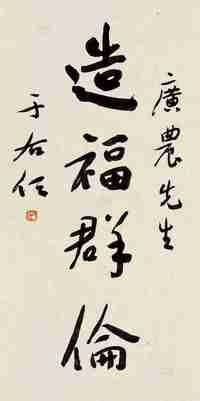 廣農先生
造福群倫
于右任